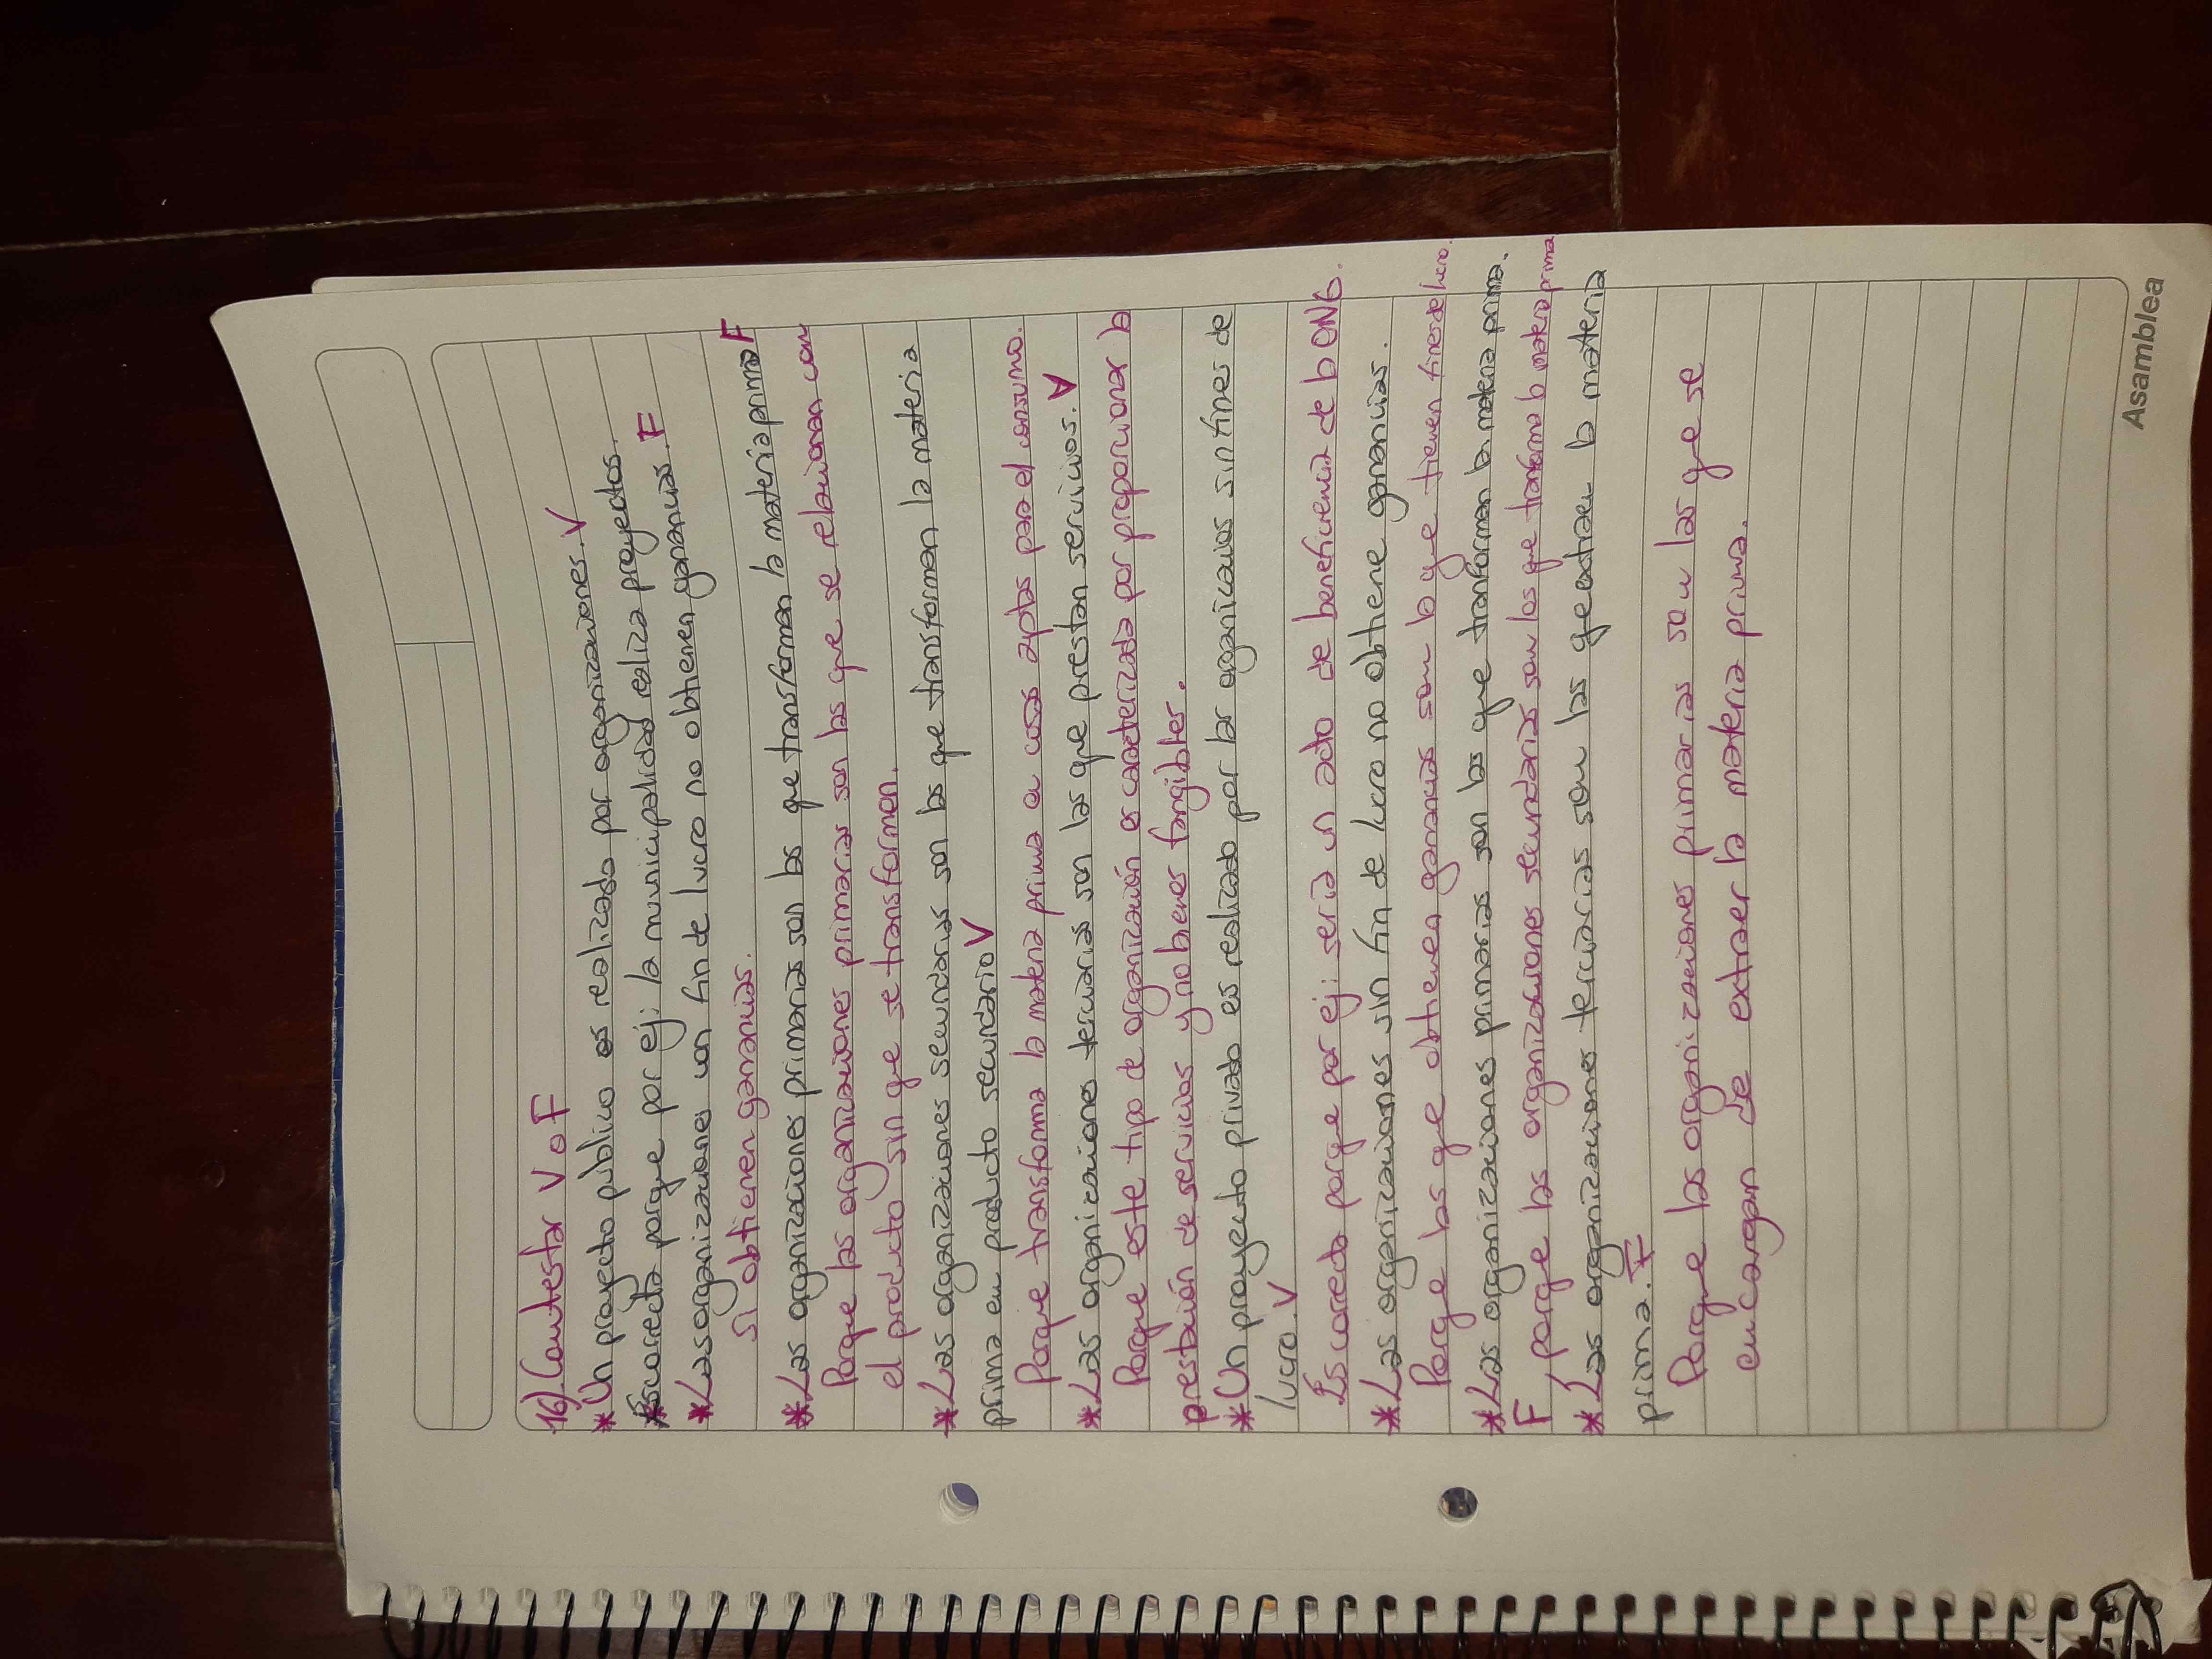 16) Contestar V o F
* Un proyecto público es realizado por organizaciones. V
Es correcta porque por ej: la municipalidad realiza proyectos.
* Las organizaciones con fin de lucro no obtienen ganancias. F
Si obtienen ganancias.
* Las organizaciones primarias son las que transforman la materia prima F
Porque las organizaciones primarias son las que se relacionan con
el producto sin que se transformen.
* Las organizaciones secundarias son las que transforman la materia
prima en producto secundario V
Porque transforma la materia prima a cosas aptas para el consumo.
* Las organizaciones terciarias son las que prestan servicios. V
Porque este tipo de organización es caracterizada por proporcionar la
prestación de servicios y no bienes fangibles.
* Un proyecto privado es realizado por las organizacios sin fines de
lucro. V
Es correcto porque por ej: seria un acto de beneficencia de la ONG.
* Las organizaciones sin fin de lucro no obtiene ganancias.
Porque las que obtienen ganancias son la que tienen fines de lucro.
* Las organizaciones primarias son las que tranforman la materia prima.
F, porque las organizaciones secundarias son las que transforma la materia prima
* Las organizaciones terciarias son las que extraen la materia
prima. F
Porque las organizaciones primarias son las que se
encargan de extraer la materia prima.
Asamblea